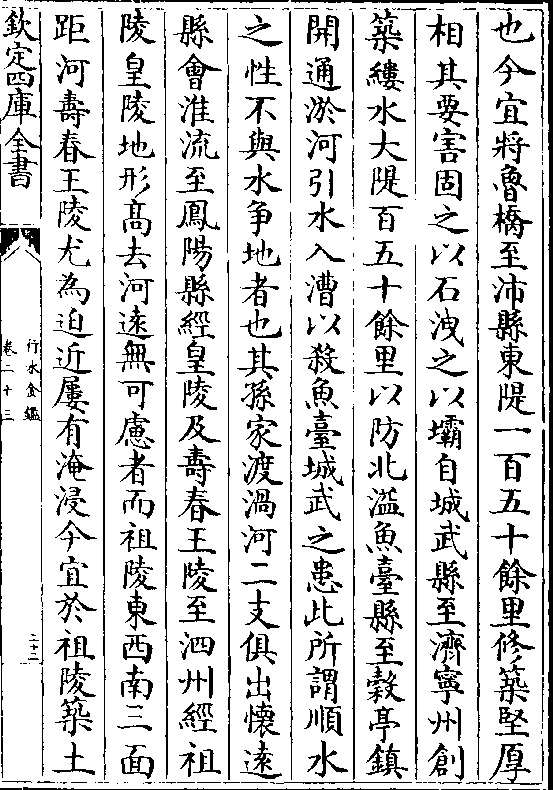 也今宜將魯橋至沛縣東隄一百五十餘里修築堅厚
相其要害固之以石洩之以壩自城武縣至濟寧州創
築縷水大隄百五十餘里以防北溢魚臺縣至穀亭鎮
開通淤河引水入漕以殺魚臺城武之患此所謂順水
之性不與水争地者也其孫家渡渦河二支俱出懷逺
縣會淮流至鳳陽縣經皇陵及壽春王陵至泗州經祖
陵皇陵地形髙去河逺無可慮者而祖陵東西南三面
距河壽春王陵尤為迫近屢有淹浸今宜於祖陵築土
欽定四庫全書
行水金鑑
卷二十三
二十二